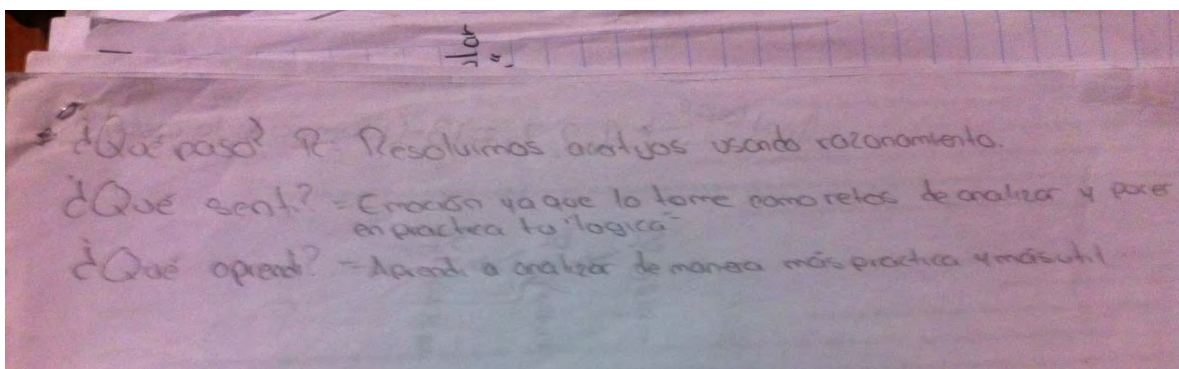 ¿Qué paso? R. Resolvimos acertijos usando razonamiento.
¿Qué sentí? = Emoción ya que lo tome como retos de analizar y poner
en practica tu "logica"
¿Qué aprendi? = Aprendi a analizar de manera más practica y más util.